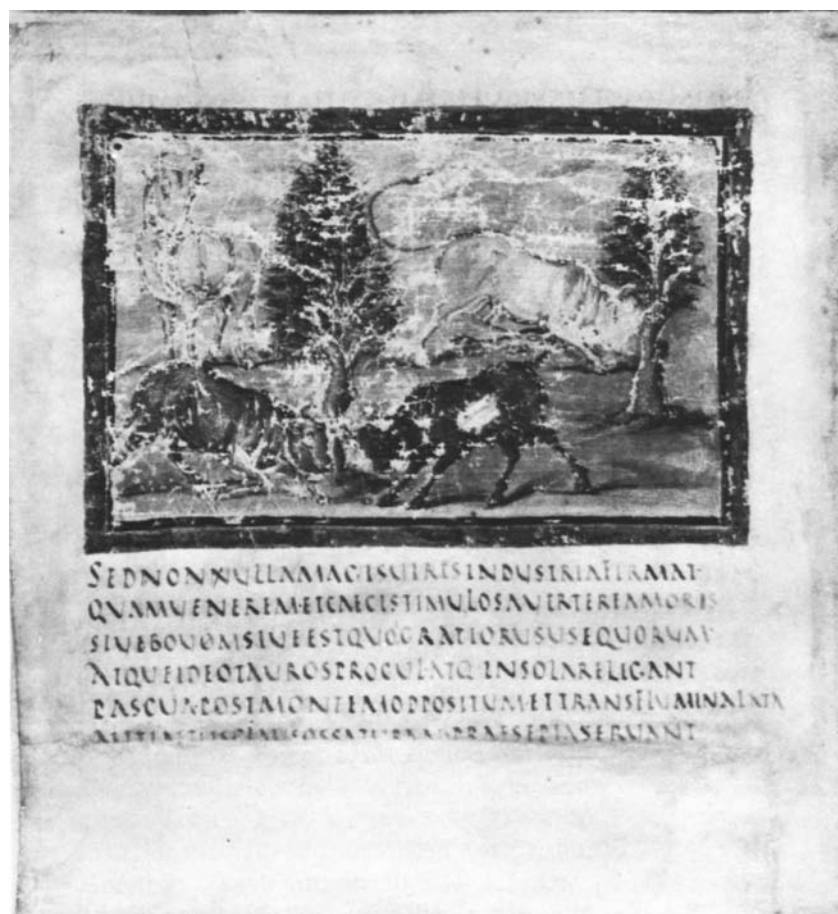 SEDNONULLAMAGISUIRESINDUSTRIAFIRMAT
QUAMUENEREMETCAECISTIMULOSAUERTEREAMORIS
SIUEBOUOMSIUEESTQUOGRATIORUSUSEQUORUM
ATQUEIDEOTAUROSPROCULATQ·INSOLARELIGANT
PASCUAPOSTMONTEMOPPOSITUMETTRANSFLUMINALATA
PRAESEPIASERUANT